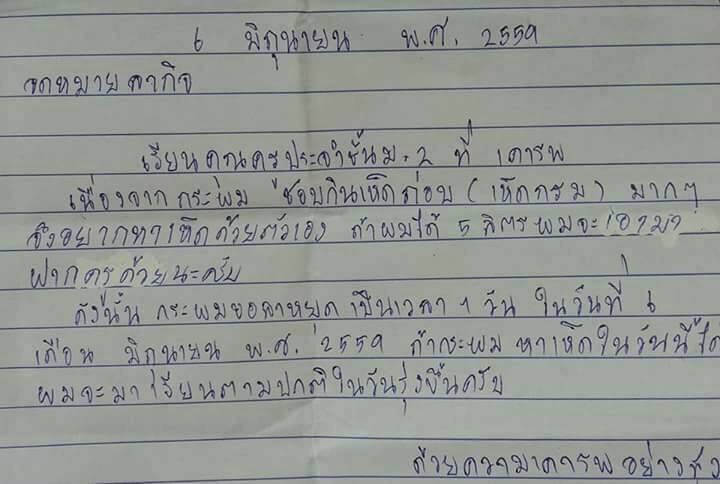 6 มิถุนายน พ.ศ. 2559
จดหมายลากิจ
เรียนคุณครูประจำชั้นม.2 ที่ เคารพ
เนื่องจาก กระผม ชอบกินเห็ดถ่อบ (เห็ดกรม) มากๆ
จึงอยากหาเห็ดด้วยตัวเอง ถ้าผมได้ 5 ลิตรผมจะเอามา
ฝากครูด้วยนะครับ
ดังนั้น กระผมขอลาหยุดเป็นเวลา 1 วัน ในวันที่ 6
เดือน มิถุนายน พ.ศ. 2559 ถ้ากระผม หาเห็ดในวันนี้ได้
ผมจะมาเรียนตามปกติในวันรุ่งขึ้นครับ
ด้วยความเคารพอย่างสูง